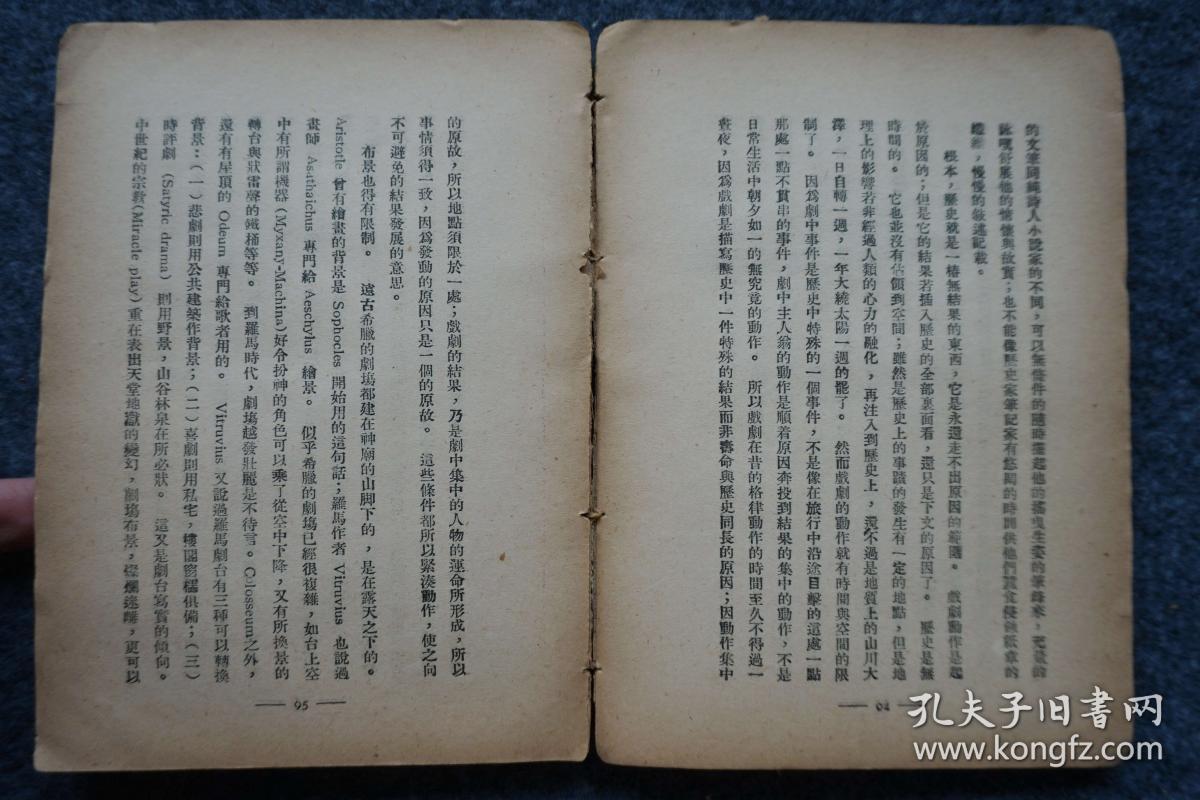 的文筆同純詩人小說家的不同，可以無條件的隨時提起他的搖曳生姿的筆鋒來，充量的
詠嘆舒展他的懷與故實；也不能像歷史家筆記家有悠閒的時間供他們蠶食侵蝕紙章的
，慢慢的敍述記載。
根本，歷史就是一樁無結果的東西，它是永遠走不出原因的範圍。　戲劇動作是起
於原因的；但是它的結果若插入歷史的全部裏面看，還只是下文的原因了。　歷史是無
時間的。　它也並沒有佔領到空間；雖然是歷史上的事蹟的發生有一定的地點，但是地
理上的影響若非經過人類的心力的融化，再注入到歷史上，還不過是地質上的山川大
澤，一日自轉一週，一年大繞太陽一週的罷了。　然而戲劇的動作就有時間與空間的限
制了。　因爲劇中事件是歷史中特殊的一個事件，不是像在旅行中沿途目擊的這處一點
那處一點不貫串的事件，劇中主人翁的動作是順着原因奔投到結果的集中的動作，不是
日常生活中朝夕如一的無究竟的動作。　所以戲劇在昔的格律動作的時間至久不得過一
晝夜，因爲戲劇是描寫歷史中一件特殊的結果而非壽命與歷史同長的原因；因動作集中
— 94 —
的原故，所以地點須限於一處；戲劇的結果，乃是劇中集中的人物的運命所形成，所以
事情須得一致，因爲發動的原因只是一個的原故。　這些條件都所以緊湊動作，使之向
不可避免的結果發展的意思。
布景也得有限制。　遠古希臘的劇場都建在神廟的山脚下的，是在露天之下的。
Aristotle 曾有繪畫的背景是 Sophocles 開始用的這句話；羅馬作者 Vitruvius 也說過
畫師 As‹thaichus 專門給 Aeschylus 繪景。　似乎希臘的劇場已經很複雜，如台上空
中有所謂機器 (Myxany-Machina) 好令扮神的角色可以乘了從空中下降，又有所換景的
轉台與狀雷聲的鐵桶等等。　到羅馬時代，劇場越發壯麗是不待言。Colosseum之外，
還有有屋頂的 Odeum 專門給歌者用的。　Vitruvius 又說過羅馬劇台有三種可以轉換
背景：（一）悲劇則用公共建築作背景；（二）喜劇則用私宅，樓閣窗櫺俱備；（三）
時評劇 (Satyric drama) 則用野景，山谷林泉在所必狀。　這又是劇台寫實的傾向。
中世紀的宗教(Miracle play)重在表出天堂地獄的變幻，劇場布景，燦爛迷離，更可以
— 95 —
孔夫子旧书网
www.kongfz.com